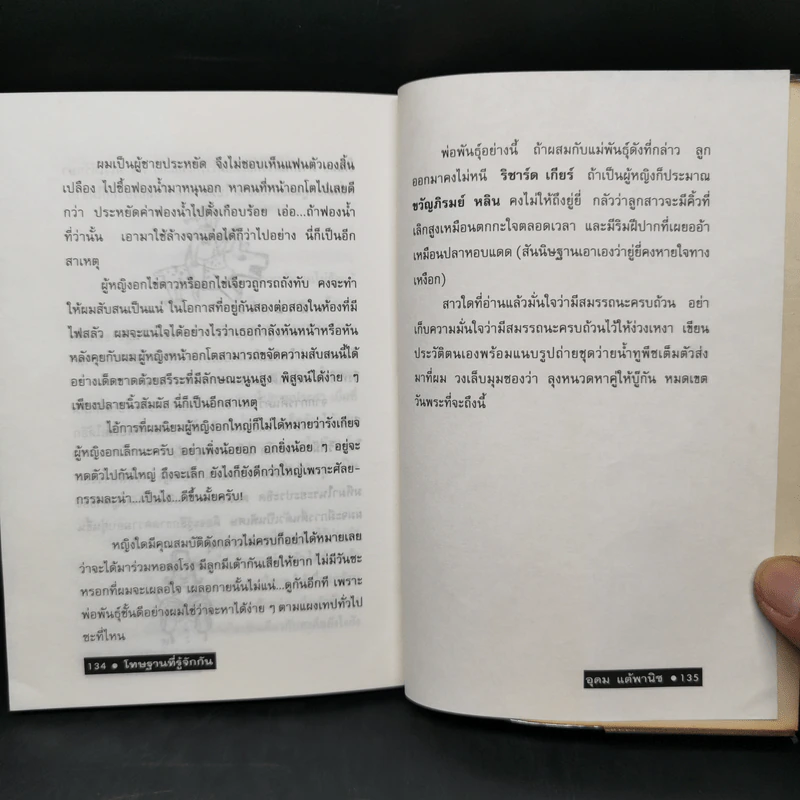 ผมเป็นผู้ชายประหยัด จึงไม่ชอบเห็นแฟนตัวเองสิ้น
เปลือง ไปซื้อฟองน้ำมาหนุนอก หาคนที่หน้าอกโตไปเลยดี
กว่า ประหยัดค่าฟองน้ำไปตั้งเกือบร้อย เอ่อ...ถ้าฟองน้ำ
ที่ว่านั้น เอามาใช้ล้างจานต่อได้ก็ว่าไปอย่าง นี่ก็เป็นอีก
สาเหตุ
ผู้หญิงอกไข่ดาวหรืออกไข่เจียวถูกรถถังทับ คงจะทำ
ให้ผมสับสนเป็นแน่ ในโอกาสที่อยู่กันสองต่อสองในห้องที่มี
ไฟสลัว ผมจะแน่ใจได้อย่างไรว่าเธอกำลังหันหน้าหรือหัน
หลังคุยกับผม ผู้หญิงหน้าอกโตสามารถขจัดความสับสนนี้ได้
อย่างเด็ดขาดด้วยสรีระที่มีลักษณะนูนสูง พิสูจน์ได้ง่าย ๆ
เพียงปลายนิ้วสัมผัส นี่ก็เป็นอีกสาเหตุ
ไอ้การที่ผมนิยมผู้หญิงอกใหญ่ก็ไม่ได้หมายว่ารังเกียจ
ผู้หญิงอกเล็กนะครับ อย่าเพิ่งน้อยอก อกยิ่งน้อย ๆ อยู่จะ
หดตัวไปกันใหญ่ ถึงจะเล็ก ยังไงก็ยังดีกว่าใหญ่เพราะศัลย-
กรรมละน่า...เป็นไง...ดีขึ้นมั้ยครับ!
หญิงใดมีคุณสมบัติดังกล่าวไม่ครบก็อย่าได้หมายเลย
ว่าจะได้มาร่วมหอลงโรง มีลูกมีเต้ากันเสียให้ยาก ไม่มีวันซะ
หรอกที่ผมจะเผลอใจ เผลอกายนั้นไม่แน่...ดูกันอีกที เพราะ
พ่อพันธุ์ชั้นดีอย่างผมใช่ว่าจะหาได้ง่าย ๆ ตามแผงเทปทั่วไป
ซะที่ไหน
134 ● โทษฐานที่รู้จักกัน
พ่อพันธุ์อย่างนี้ ถ้าผสมกับแม่พันธุ์ดังที่กล่าว ลูก
ออกมาคงไม่หนี ริชาร์ด เกียร์ ถ้าเป็นผู้หญิงก็ประมาณ
ขวัญภิรมย์ หลิน คงไม่ให้ถึงยู่ยี่ กลัวว่าลูกสาวจะมีคิ้วที่
เลิกสูงเหมือนตกกะใจตลอดเวลา และมีริมฝีปากที่เผยออ้า
เหมือนปลาหอบแดด (สันนิษฐานเอาเองว่ายู่ยี่คงหายใจทาง
เหงือก)
สาวใดที่อ่านแล้วมั่นใจว่ามีสมรรถนะครบถ้วน อย่า
เก็บความมั่นใจว่ามีสมรรถนะครบถ้วนไว้ให้ง่วงเหงา เขียน
ประวัติตนเองพร้อมแนบรูปถ่ายชุดว่ายน้ำทูพีชเต็มตัวส่ง
มาที่ผม วงเล็บมุมซองว่า ลุงหนวดหาคู่ให้บู๊กัน หมดเขต
วันพระที่จะถึงนี้
อุดม แต้พานิช ● 135